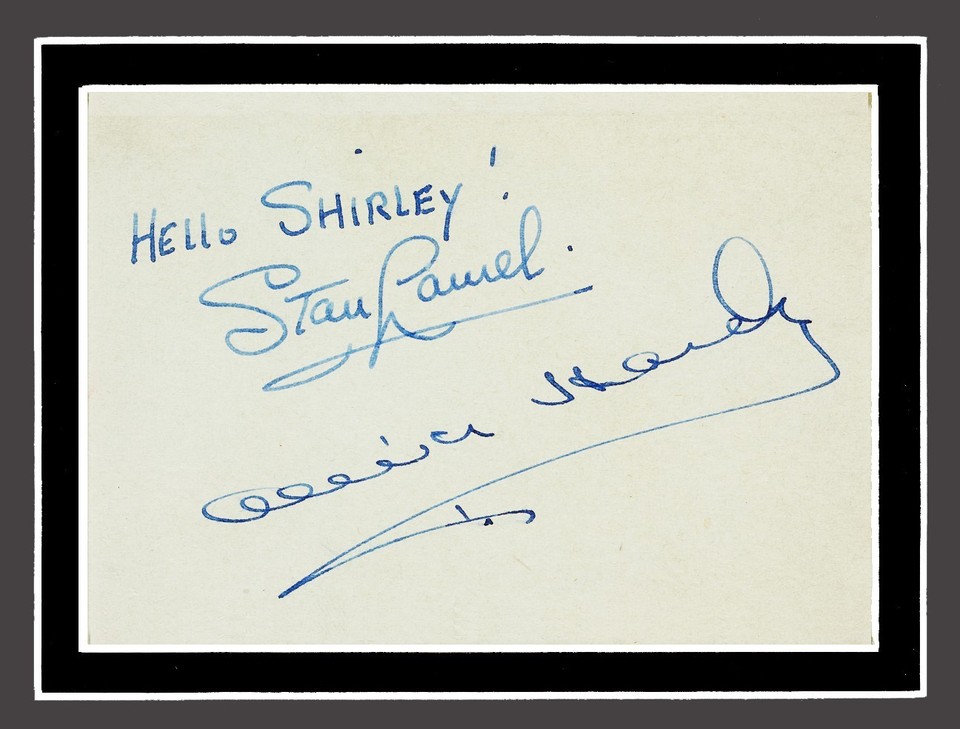 HELLO SHIRLEY!
Stan Laurel.
Oliver Hardy